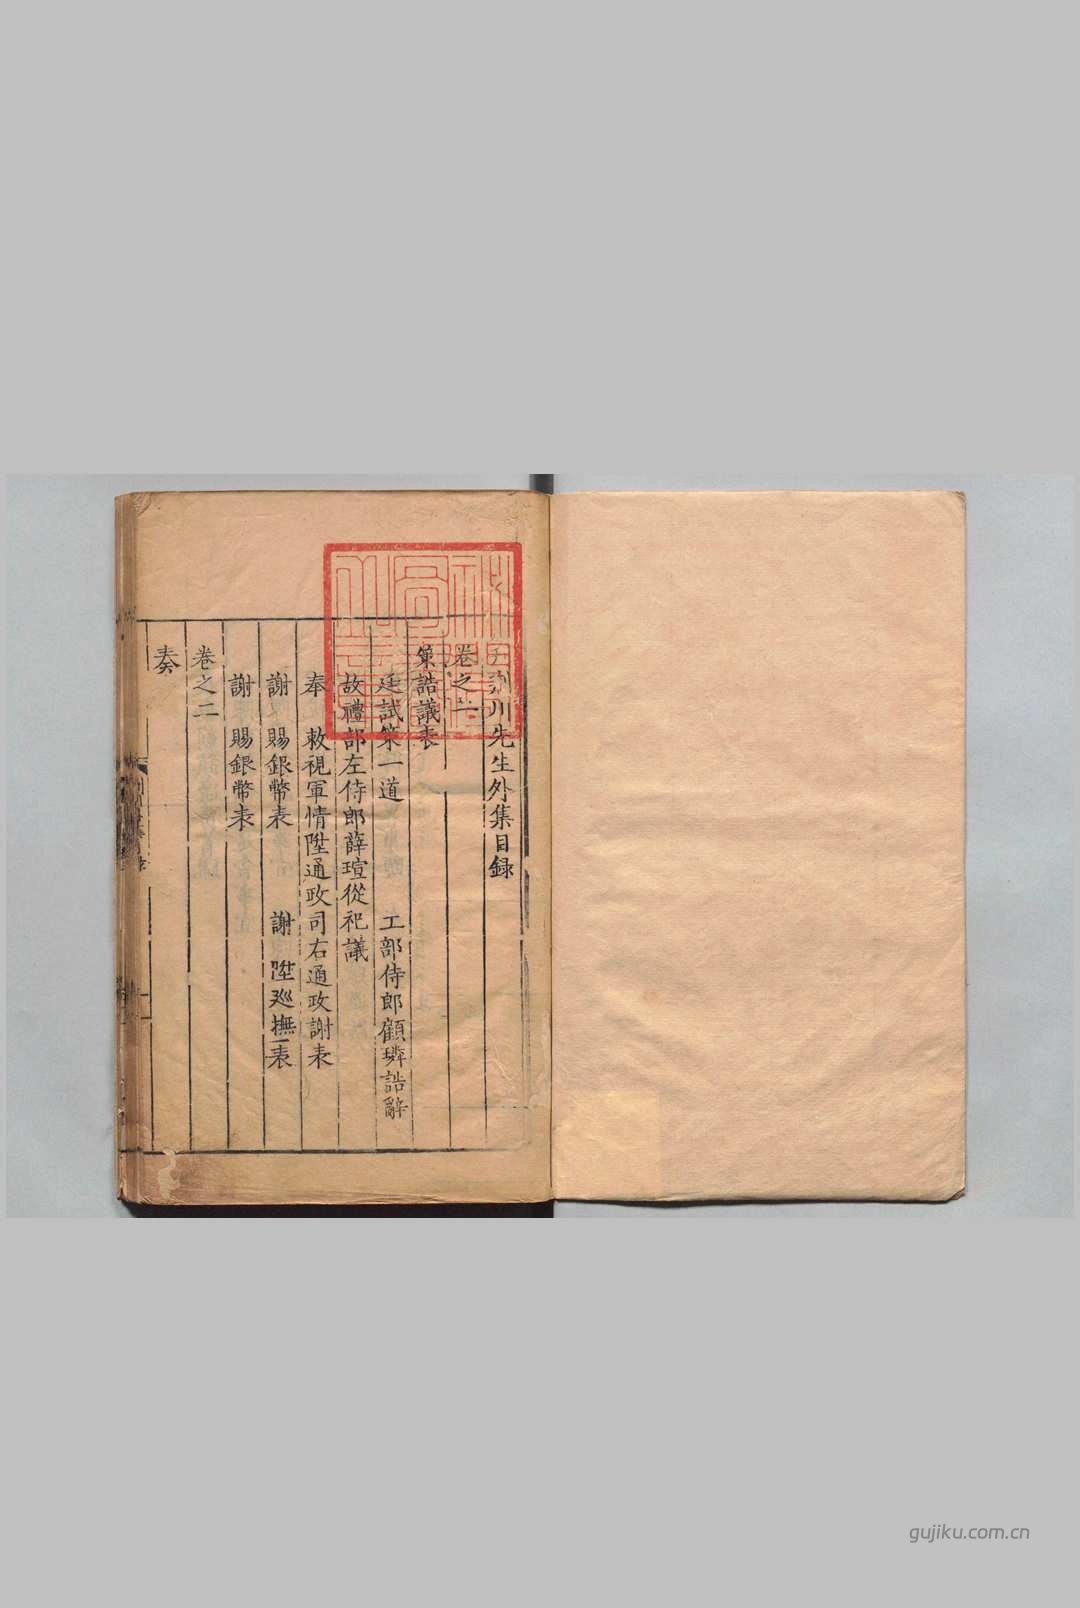 荆川先生外集目録
卷之一
策誥議表
廷試策一道 工部侍郎顧璘誥辭
故禮部左侍郎薛瑄從祀議
奉 敕視軍情陞通政司右通政謝表
謝 賜銀幣表 謝 陞廵撫表
謝 賜銀幣表
卷之二
奏
gujiku.com.cn